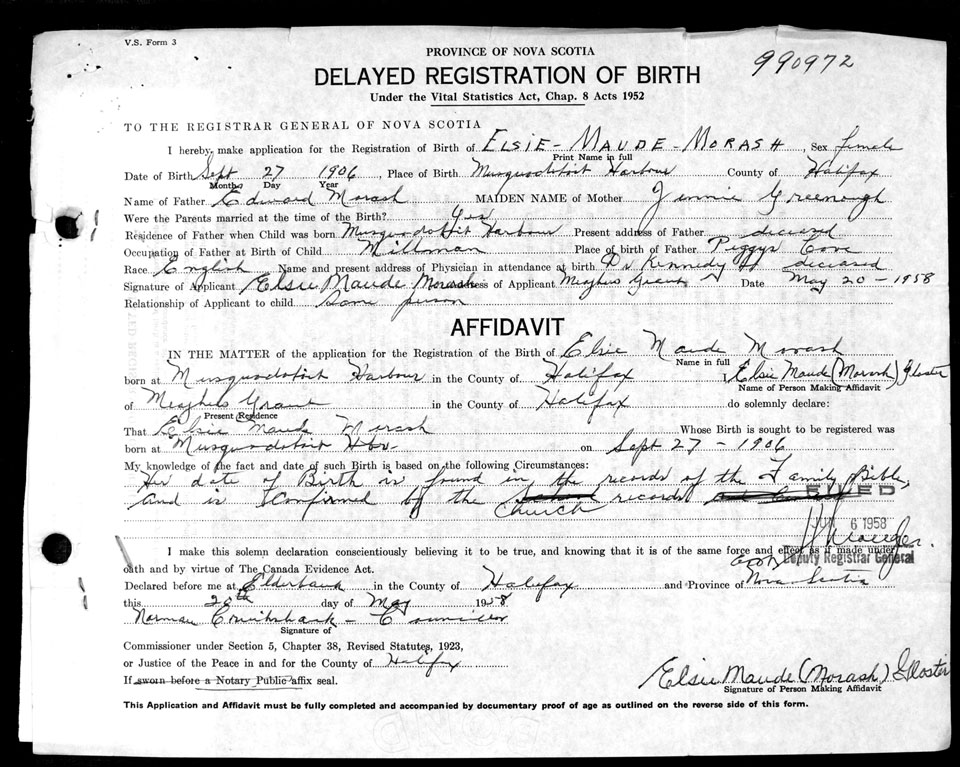 V.S. Form 3
PROVINCE OF NOVA SCOTIA
990972
DELAYED REGISTRATION OF BIRTH
Under the Vital Statistics Act, Chap. 8 Acts 1952
TO THE REGISTRAR GENERAL OF NOVA SCOTIA
I hereby make application for the Registration of Birth of ELSIE-MAUDE-MORASH, Sex female
Print Name in full
Date of Birth Sept 27 1906, Place of Birth Musquodoboit Harbour County of Halifax
Month Day Year
Name of Father Edward Morash MAIDEN NAME of Mother Jennie Greenough
Were the Parents married at the time of the Birth? Yes
Residence of Father when Child was born Musquodoboit Harbour Present address of Father deceased
Occupation of Father at Birth of Child Millman Place of birth of Father Peggys Cove
Race English Name and present address of Physician in attendance at birth Dr Kennedy deceased
Signature of Applicant Elsie Maude Morash Address of Applicant Meaghers Grant Date May 20-1958
Relationship of Applicant to child Same person
AFFIDAVIT
IN THE MATTER of the application for the Registration of the Birth of Elsie Maude Morash
Name in full
born at Musquodoboit Harbour in the County of Halifax, Elsie Maude (Morash) Gloster
Name of Person Making Affidavit
of Meaghers Grant in the County of Halifax do solemnly declare:
Present Residence
That Elsie Maude Morash Whose Birth is sought to be registered was
born at Musquodoboit Hbr on Sept 27-1906
My knowledge of the fact and date of such Birth is based on the following Circumstances:
Her date of Birth is found in the records of the Family Bible,
and is confirmed by the records
Church
FILED
JUN 6 1958
Deputy Registrar General
I make this solemn declaration conscientiously believing it to be true, and knowing that it is of the same force and effect as if made under
oath and by virtue of The Canada Evidence Act.
Declared before me at Elderbank in the County of Halifax and Province of Nova Scotia
this 20th day of May 1958
Norman Cruikshank - Councillor
Signature of
Commissioner under Section 5, Chapter 38, Revised Statutes, 1923,
or Justice of the Peace in and for the County of Halifax
If sworn before a Notary Public affix seal.
Elsie Maude (Morash) Gloster
Signature of Person Making Affidavit
This Application and Affidavit must be fully completed and accompanied by documentary proof of age as outlined on the reverse side of this form.